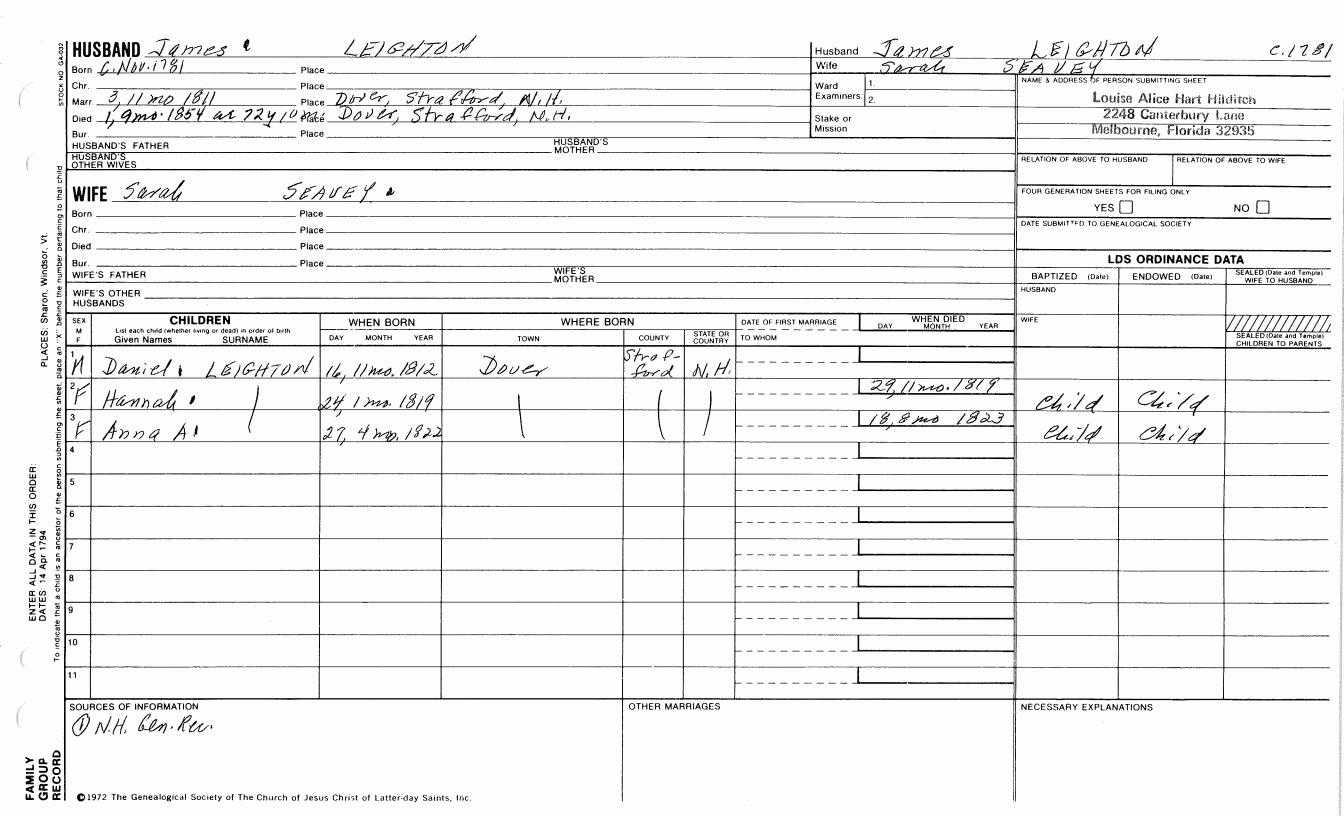 HUSBAND James LEIGHTON
Born C. Nov. 1781 Place
Chr. Place
Marr 3, 11 mo 1811 Place Dover, Strafford, N.H.
Died 1, 9mo. 1854 ae 72y 10 Place Dover, Strafford, N.H.
Bur. Place
HUSBAND'S FATHER HUSBAND'S MOTHER
HUSBAND'S OTHER WIVES
WIFE Sarah SEAVEY
Born Place
Chr. Place
Died Place
Bur. Place
WIFE'S FATHER WIFE'S MOTHER
WIFE'S OTHER HUSBANDS
Husband James LEIGHTON C. 1781
Wife Sarah SEAVEY
Ward Examiners 1.
2.
Stake or Mission
NAME & ADDRESS OF PERSON SUBMITTING SHEET
Louise Alice Hart Hilditch
2248 Canterbury Lane
Melbourne, Florida 32935
RELATION OF ABOVE TO HUSBAND RELATION OF ABOVE TO WIFE
FOUR GENERATION SHEETS FOR FILING ONLY
YES NO
DATE SUBMITTED TO GENEALOGICAL SOCIETY
LDS ORDINANCE DATA
BAPTIZED (Date) ENDOWED (Date) SEALED (Date and Temple) WIFE TO HUSBAND
HUSBAND
WIFE
SEALED (Date and Temple) CHILDREN TO PARENTS
SEX M F
CHILDREN
List each child (whether living or dead) in order of birth
Given Names SURNAME
WHEN BORN
DAY MONTH YEAR
WHERE BORN
TOWN COUNTY STATE OR COUNTRY
DATE OF FIRST MARRIAGE
TO WHOM
WHEN DIED
DAY MONTH YEAR
1 M Daniel LEIGHTON 16, 11mo. 1812 Dover Straf-ford N.H.
2 F Hannah 24, 1 mo. 1819 29, 11mo. 1819 Child Child
3 F Anna A 27, 4 mo. 1822 18, 8 mo 1823 Child Child
4
5
6
7
8
9
10
11
SOURCES OF INFORMATION
① N.H. Gen. Rec.
OTHER MARRIAGES
NECESSARY EXPLANATIONS
©1972 The Genealogical Society of The Church of Jesus Christ of Latter-day Saints, Inc.
STOCK NO GA-032
To indicate that a child is an ancestor of the person submitting the sheet, place an "X" behind the number pertaining to that child
ENTER ALL DATA IN THIS ORDER:
DATES: 14 Apr 1794 PLACES: Sharon, Windsor, Vt.
FAMILY
GROUP
RECORD